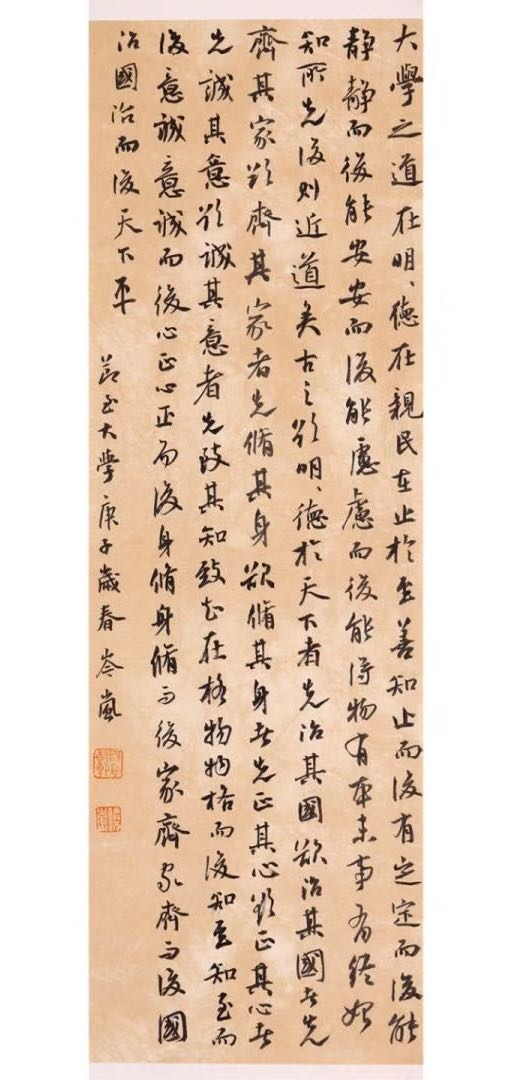 大學之道在明、德在親民在止於至善知止而後有定定而後能
靜靜而後能安安而後能慮慮而後能得物有本末事有終始
知所先後則近道矣古之欲明、德於天下者先治其國欲治其國者先
齊其家欲齊其家者先脩其身欲脩其身者先正其心欲正其心者
先誠其意欲誠其意者先致其知致知在格物物格而後知至知至而
後意誠意誠而後心正心正而後身脩身脩而後家齊家齊而後國
治國治而後天下平
節大學庚子歲春岑嵐